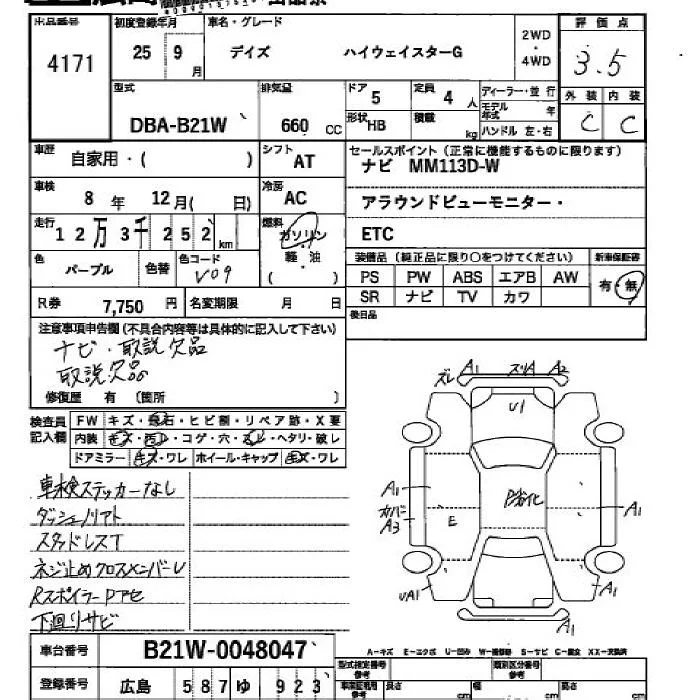 出品番号 初度登録年月 車名・グレード 2WD・4WD 評価点
4171 25 9月 デイズ ハイウェイスターG 3.5
型式 排気量 ドア 定員 ディーラー・並行 外装 内装
DBA-B21W 660 CC 5 4人 モデル年式 年 C C
形状 HB 積載 kg ハンドル 左・右
車歴 自家用・( ) シフト AT セールスポイント(正常に機能するものに限ります)
ナビ MM113D-W
車検 8年 12月( 日) 冷房 AC アラウンドビューモニター・
走行 12万3千252km 燃料 ガソリン ETC
軽・油
( )
色 パープル 色替 色コード V09
装備品(純正品に限り○をつけてください) 新車保証書
PS PW ABS エアB AW 有・無
SR ナビ TV カワ
R券 7,750円 名変期限 月 日 後日品
注意事項申告欄(不具合内容等は具体的に記入して下さい)
ナビ・取説欠品
取説欠品
修復歴 有 (箇所 )
検査員記入欄 FW キズ・飛石・ヒビ割・リペア跡・X要
内装 キズ・汚レ・コゲ・穴・スレ・ヘタリ・破レ
ドアミラー キズ・ワレ ホイール・キャップ キズ・ワレ
車検ステッカーなし
ダッシュノリアト
スタッドレスT
ネジ止めクロスメンバーU
RスポイラーPアセ
下廻りサビ
ズレ A1 ズリA A2
U1
A1
カバー
A3
E
P劣化
A1
UA1
A1
A1
車台番号 B21W-0048047
登録番号 広島 587 ゆ 923
A-キズ E-エクボ U-凹み W-補修跡 S-サビ C-腐食 XX-交換済
型式指定番号 参考 類別区分番号 参考
長さ cm 幅 cm 高さ cm